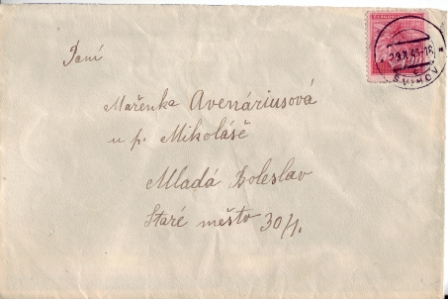 Paní
Mařenka Avenáriusová
u p. Mikoláše
Mladá Boleslav
Staré město 30/I.
ŠVIHOV